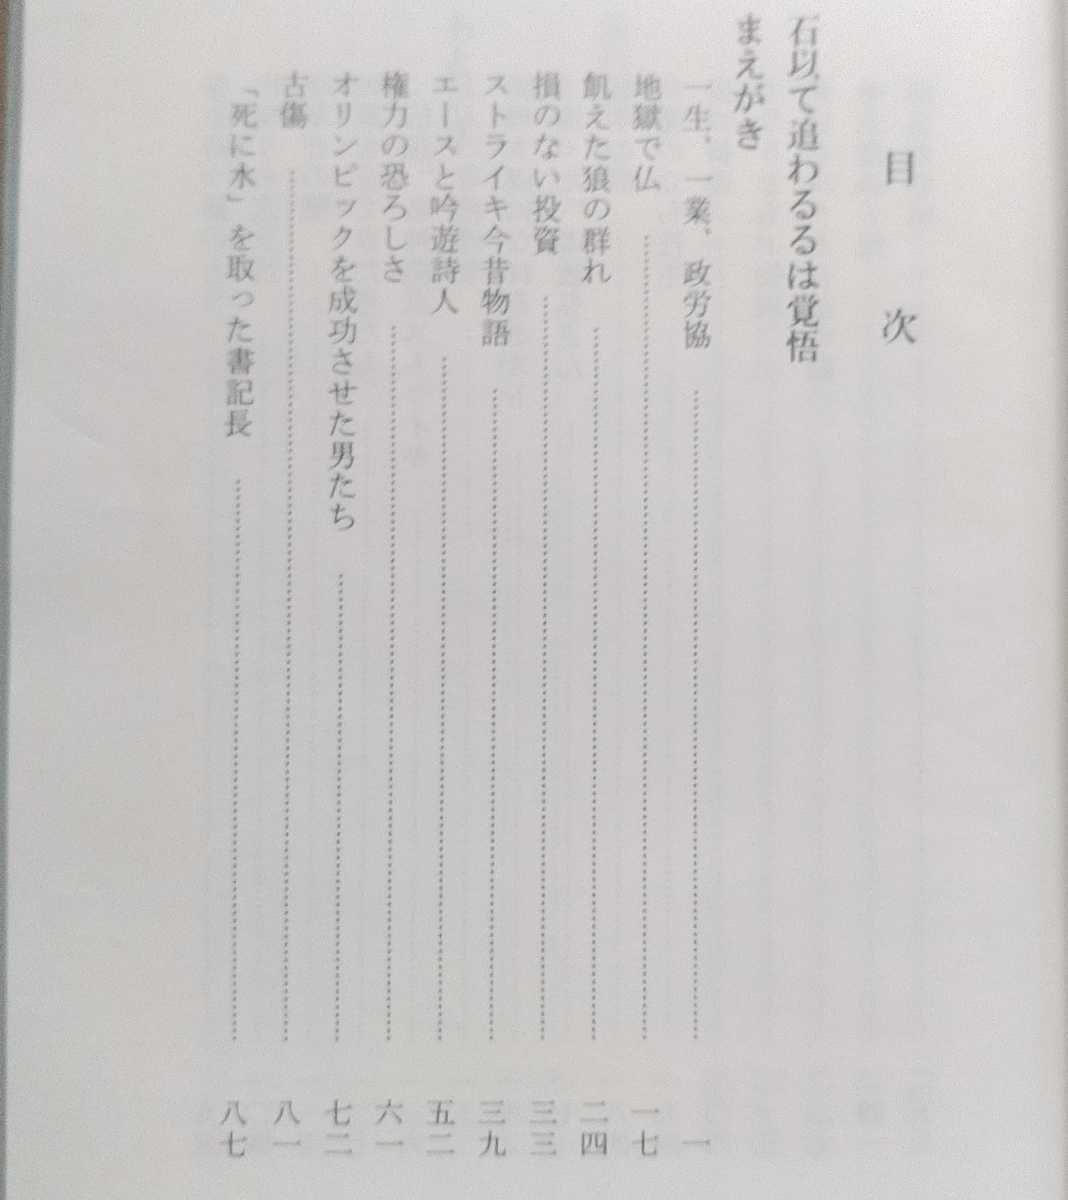 目次
石以て追わるるは覚悟
まえがき
一生、一業、政労協 一
地獄で仏 一七
飢えた狼の群れ 二四
損のない投資 三三
ストライキ今昔物語 三九
エースと吟遊詩人 五二
権力の恐ろしさ 六一
オリンピックを成功させた男たち 七二
古傷 八一
「死に水」を取った書記長 八七